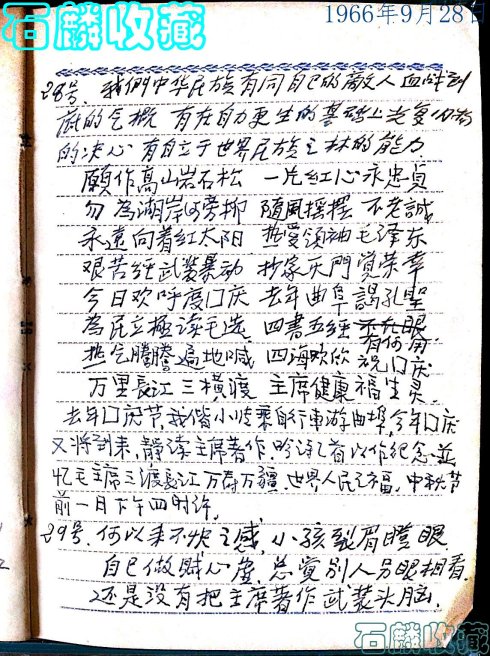 石麟收藏
1966年9月28日
28号. 我們中华民族有同自己的敵人血战到
底的气概 有在自力更生的基础上光复旧物
的决心 有自立于世界民族之林的能力
願作高山岩石松 一片红心永忠貞
勿為湖岸河旁柳 随風摇摆不老誠
永遠向着红太阳 热爱领袖毛泽东
艰苦经武装暴动 抄家灭門覚荣幸
今日欢呼度囗庆 去年曲阜謁孔聖
為民立極读毛选 四書五经
有何用
热气騰騰遍地喊 四海欢欣祝囗庆
万里長江三横渡 主席健康福生灵.
去年囗庆节,我偕小 乘自行車游曲埠,今年囗庆
又将到来,静读主席著作,吟诗乙首以作纪念並
忆毛主席三渡長江万寿万疆.世界人民之福,中秋节
前一日下午四时许.
29号.何以来不快之感,小孩裂眉瞪眼
自己做贼心虚,总覚别人另眼相看
还是没有把主席著作武装头脑.
石麟收藏